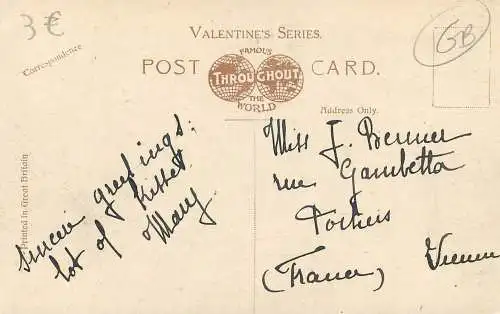 3€
GB
VALENTINE'S SERIES.
POST CARD.
FAMOUS
THROUGHOUT
THE
WORLD
Correspondence
Address Only.
Printed in Great Britain
sincere greetings.
lot of kisses
Mary
Miss J.
rue Gambetta
Poitiers
(France) Vienne